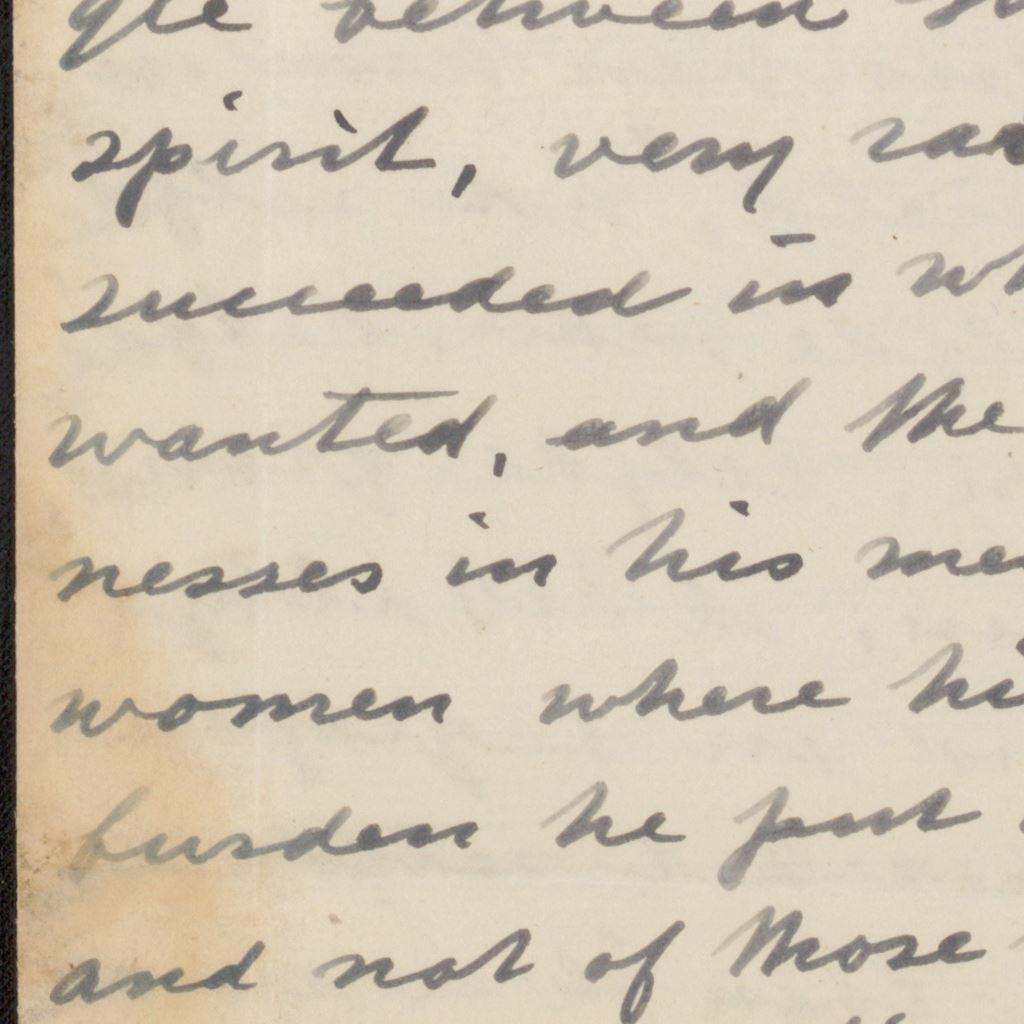 gle between
spirit, very
succeeded in
wanted, and the
nesses in his
women where
burden he put
and not of those